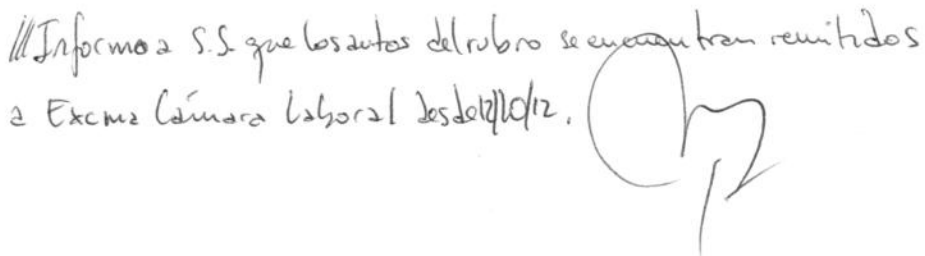 ///Informo a S.S. que los autos del rubro se encuentran remitidos
a Excma Cámara Laboral desde